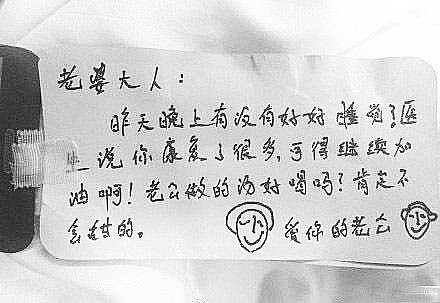 老婆大人：
昨天晚上有没有好好睡觉？医
生说你康复了很多，可得继续加
油啊！老公做的汤好喝吗？肯定不
会甜的。 爱你的老公